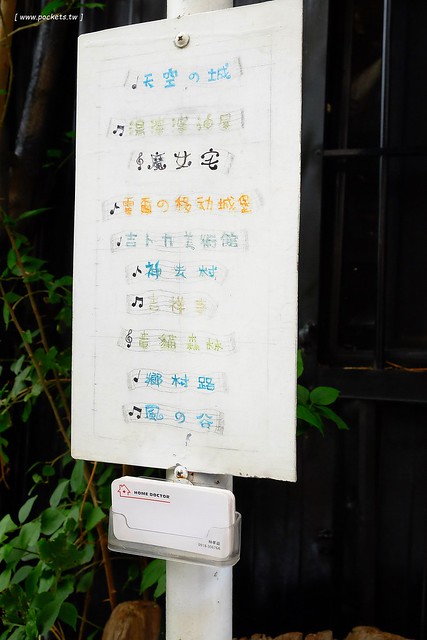 [ www.pockets.tw ]
天空の城
湯婆婆油屋
魔女宅
霍爾の移動城堡
吉卜力美術館
神去村
吉祥寺
龍貓森林
鄉村路
風の谷
HOME DOCTOR